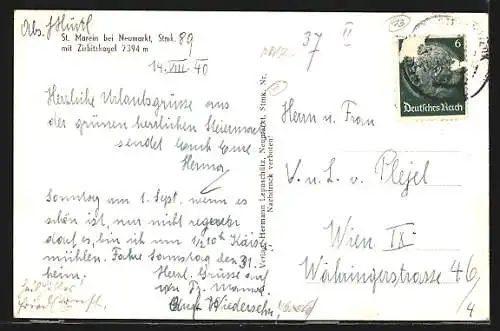 Abs. Hürtl
St. Marein bei Neumarkt, Stmk. 89
mit Zirbitzkogel 2394 m
14. VIII. 40
37 II
Herzliche Urlaubsgrüsse aus
der grünen herrlichen Steiermark
sendet Euch Eure
Herma
Sonntag am 1. Sept. wenn es
schön ist, nur nicht regnen
darf es, bin ich um ½10h Kaiser
mühlen. Fahre Samstag den 31.
heim. Herzl. Grüsse auf
Wiedersehn
Verlag: Hermann Legnschütz, Neumarkt, Stmk. Nr.
Nachdruck verboten!
6
Deutsches Reich
Herrn u. Frau
V. u. L. v. Plejel
Wien IX
Währingerstrasse 46/
/4